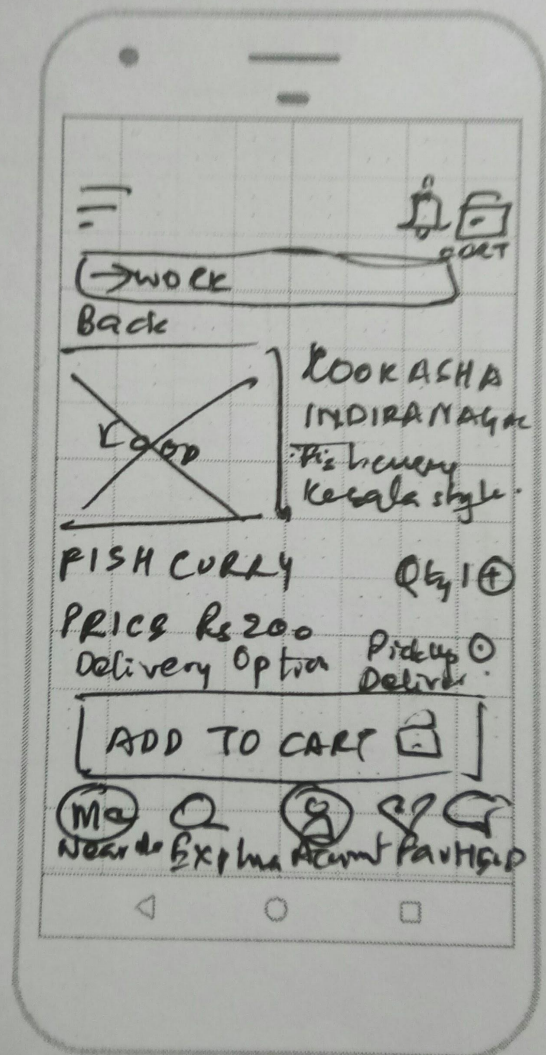 CART
→ WORK
Back
KOOKASHA
INDIRANAGAR
Kerala style.
FISH CURRY
Qty 1 +
PRICE Rs 200
Delivery Option
Pickup
Deliver
ADD TO CART
Me
Near Me Explore Account Fav HELP